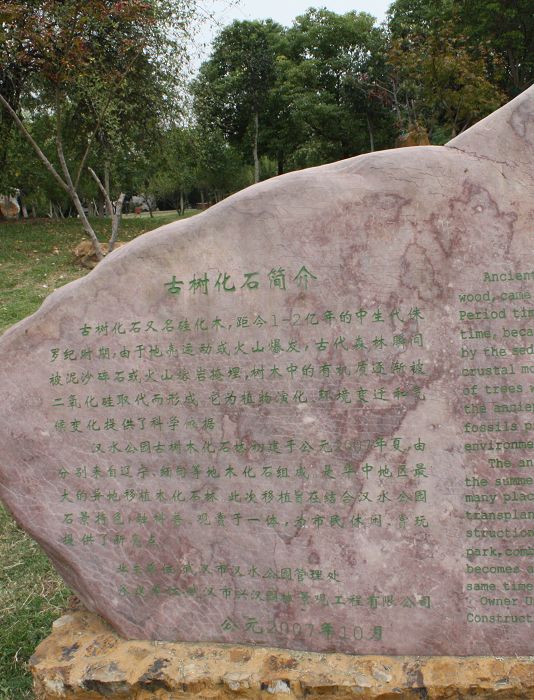 古树化石简介
古树化石又名硅化木，距今1-2亿年的中生代侏
罗纪时期，由于地壳运动或火山爆发，古代森林瞬间
被泥沙碎石或火山熔岩掩埋，树木中的有机质逐渐被
二氧化硅取代而形成。它为植物演化、环境变迁和气
候变化提供了科学依据。
汉水公园古树木化石林初建于公元2007年夏，由
分别来自辽宁、缅甸等地木化石组成，是华中地区最
大的异地移植木化石林。此次移植旨在结合汉水公园
石景特色，融科普、观赏于一体，为市民休闲、赏玩
提供了新亮点。
业主单位：武汉市汉水公园管理处
武汉市兴汉园林景观工程有限公司
公元2007年10月
Ancient
wood, came
Period tim
time, beca
by the sed
crustal mo
of trees w
the ancien
fossils p
environme
The an
the summe
many place
transplan
struction
park, comb
becomes a
same time
Owner U
Construct